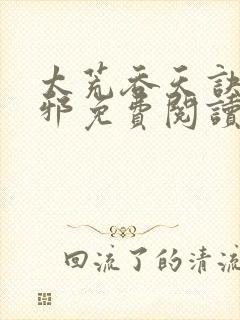 大荒吞天訣
邪免費閱讀
回流了的清流